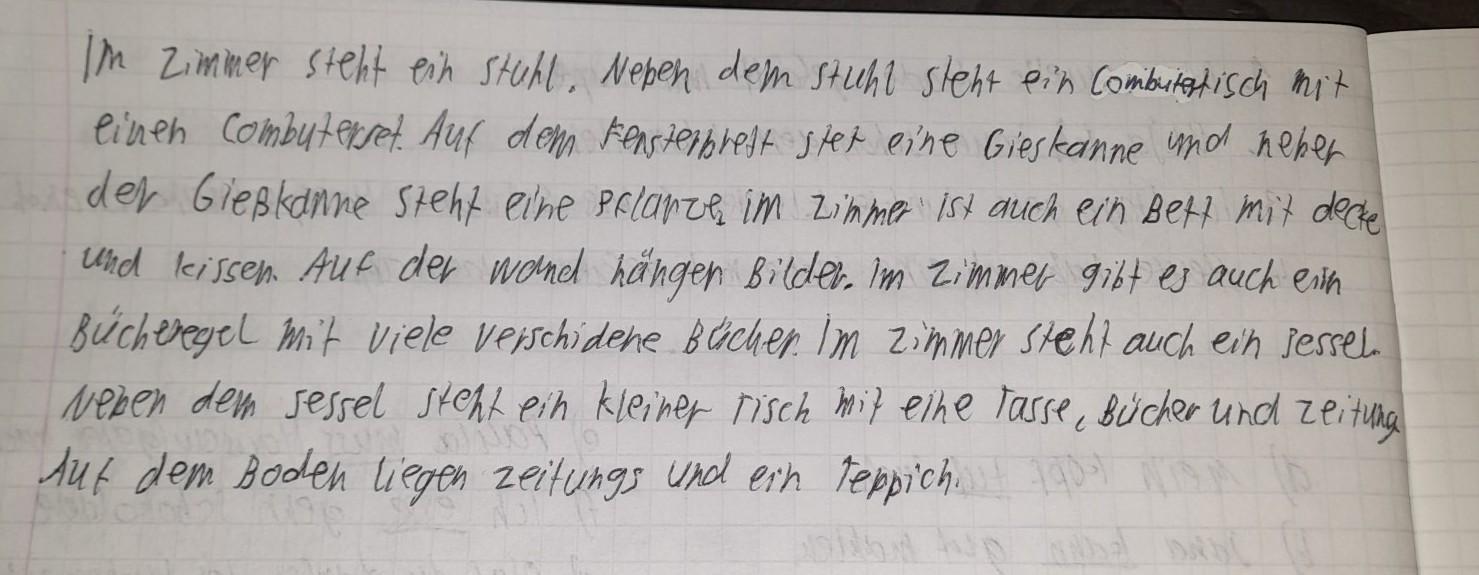 Im Zimmer steht ein stuhl. Neben dem stuhl steht ein Combutertisch mit
einen Combuterset. Auf dem Fensterbrett stet eine Gieskanne und neber
der Gießkanne steht eine Pflanze, im Zimmer ist auch ein Bett mit decke
und kissen. Auf der wand hängen Bilder. Im Zimmer gibt es auch ein
Bücheregel mit viele verschidene Bücher. Im Zimmer steht auch ein sessel.
Neben dem sessel steht ein kleiner Tisch mit eine Tasse, Bücher und zeitung
Auf dem Boden liegen zeitungs und ein Teppich.